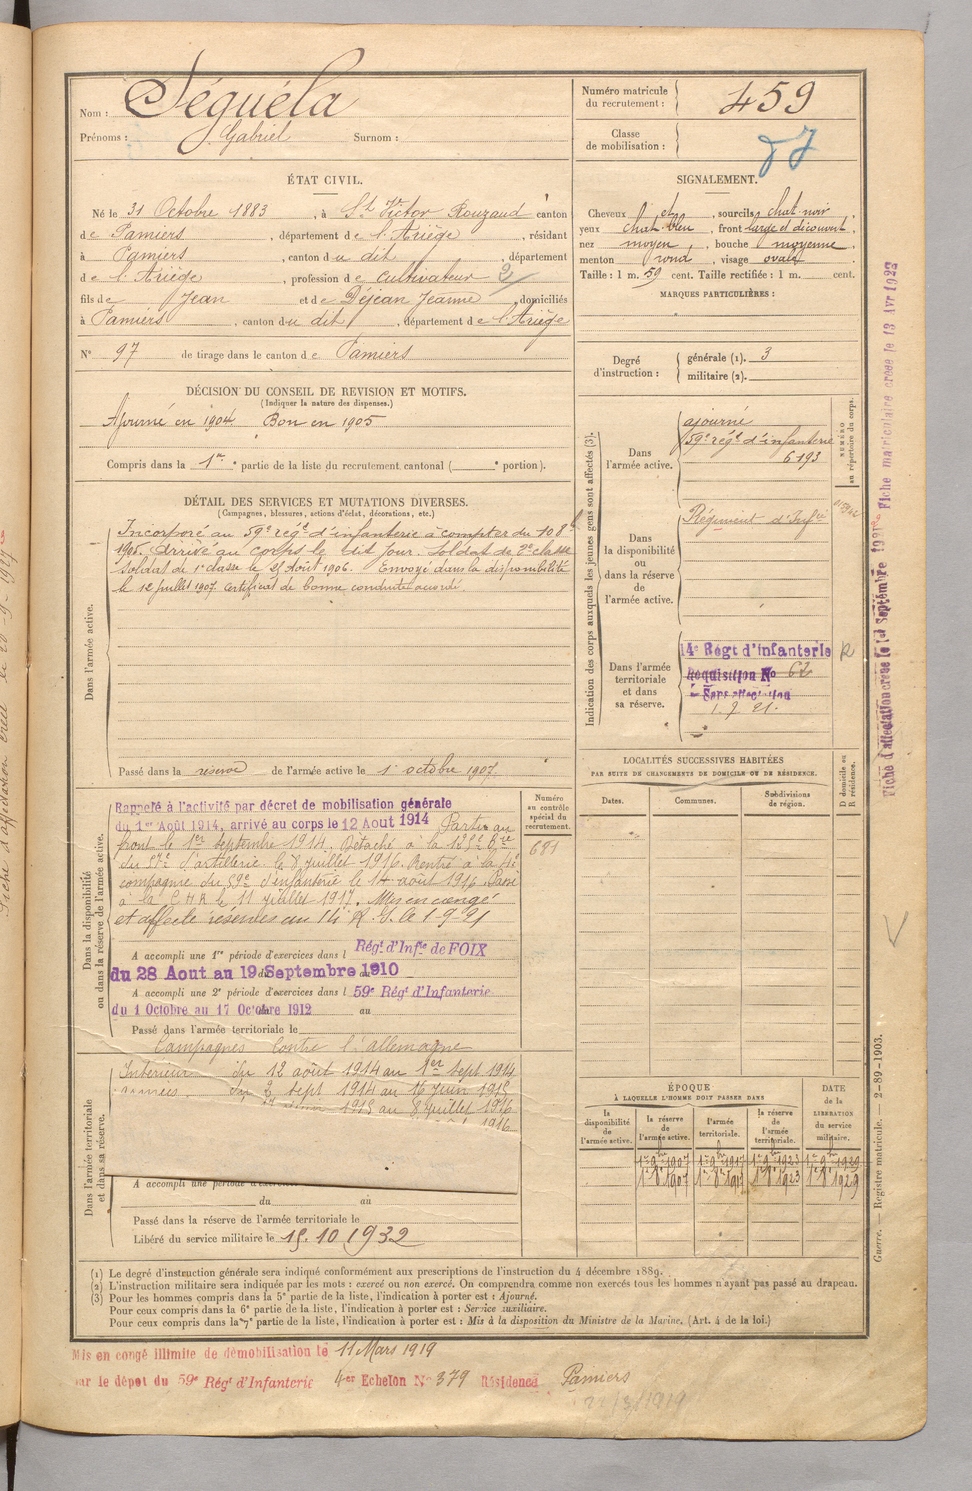 Nom : Séguéla
Prénoms : Gabriel Surnom :
Numéro matricule du recrutement : 459
Classe de mobilisation :
ÉTAT CIVIL.
Né le 31 Octobre 1883, à St Victor Rouzaud canton
de Pamiers, département de l'Ariège, résidant
à Pamiers, canton du dit, département
de l'Ariège, profession de cultivateur
fils de Jean et de Déjean Jeanne, domiciliés
à Pamiers, canton du dit, département de l'Ariège
N° 97 de tirage dans le canton de Pamiers
SIGNALEMENT.
Cheveux et, sourcils chat. noir
yeux chat. bleu, front large et découvert,
nez moyen, bouche moyenne,
menton rond, visage ovale
Taille : 1 m. 59 cent. Taille rectifiée : 1 m. cent.
MARQUES PARTICULIÈRES :
Degré d'instruction : générale (1). 3
militaire (2).
DÉCISION DU CONSEIL DE REVISION ET MOTIFS.
(Indiquer la nature des dispenses.)
Ajourné en 1904 Bon en 1905
Compris dans la 1re partie de la liste du recrutement cantonal ( portion).
DÉTAIL DES SERVICES ET MUTATIONS DIVERSES.
(Campagnes, blessures, actions d'éclat, décorations, etc.)
Dans l'armée active.
Incorporé au 59e régt d'infanterie à compter du 10 8bre
1905. Arrivé au corps le dit jour. Soldat de 2e classe
Soldat de 1e classe le 25 août 1906. Envoyé dans la disponibilité
le 12 juillet 1907. Certificat de bonne conduite accordé.
Passé dans la réserve de l'armée active le 1 octobre 1907.
Indication des corps auxquels les jeunes gens sont affectés (3).
NUMÉRO au répertoire du corps.
Dans l'armée active.
ajourné
59e régt d'infanterie
6193
Dans la disponibilité ou dans la réserve de l'armée active.
Régiment d'Infie
Dans l'armée territoriale et dans sa réserve.
14e Régt d'infanterie R
Réquisition No 62
Sans affectation
1. 9. 21.
Dans la disponibilité ou dans la réserve de l'armée active.
Numéro au contrôle spécial du recrutement.
681
Rappelé à l'activité par décret de mobilisation générale
du 1er Août 1914, arrivé au corps le 12 Aout 1914 Parti au
front le 1er septembre 1914. Détaché à la 135e Bie
du 57e d'artillerie le 8 juillet 1916. Rentré à la 4e
compagnie du 59e d'infanterie le 14 août 1916 Passé
à la C H R le 11 juillet 1917. Mis en congé
et affecté réserves au 14e R. I. le 1-9-21
A accompli une 1re période d'exercices dans l Régt d'Infie de FOIX
du 28 Aout au 19 Septembre 1910
A accompli une 2e période d'exercices dans l 59e Régt d'Infanterie
du 1 Octobre au 17 Octobre 1912 au
Passé dans l'armée territoriale le
Campagnes Contre l'allemagne
Dans l'armée territoriale et dans sa réserve.
Intérieur du 12 août 1914 au 1er sept 1914
du 2 sept 1914 au 16 juin 1915
1915 au 8 juillet 1916
1916
A accompli une période d'exercices
du au
Passé dans la réserve de l'armée territoriale le
Libéré du service militaire le 15. 10 1932
LOCALITÉS SUCCESSIVES HABITÉES
PAR SUITE DE CHANGEMENTS DE DOMICILE OU DE RÉSIDENCE.
D domicile ou R résidence.
Dates. Communes. Subdivisions de région.
ÉPOQUE
À LAQUELLE L'HOMME DOIT PASSER DANS
la disponibilité de l'armée active. la réserve de l'armée active. l'armée territoriale. la réserve de l'armée territoriale.
DATE de la LIBÉRATION du service militaire.
(1) Le degré d'instruction générale sera indiqué conformément aux prescriptions de l'instruction du 4 décembre 1889.
(2) L'instruction militaire sera indiquée par les mots : exercé ou non exercé. On comprendra comme non exercés tous les hommes n'ayant pas passé au drapeau.
(3) Pour les hommes compris dans la 5e partie de la liste, l'indication à porter est : Ajourné.
Pour ceux compris dans la 6e partie de la liste, l'indication à porter est : Service auxiliaire.
Pour ceux compris dans la 7e partie de la liste, l'indication à porter est : Mis à la disposition du Ministre de la Marine. (Art. 4 de la loi.)
Mis en congé illimité de démobilisation le 11 Mars 1919
par le dépot du 59e Régt d'Infanterie 4er Echelon No 379 Résidence Pamiers
Guerre. — Registre matricule. — 2-89-1903.
Fiche d'affectation créée le 1er Septembre 1921 Fiche matriculaire créée le 13 Avr 1923